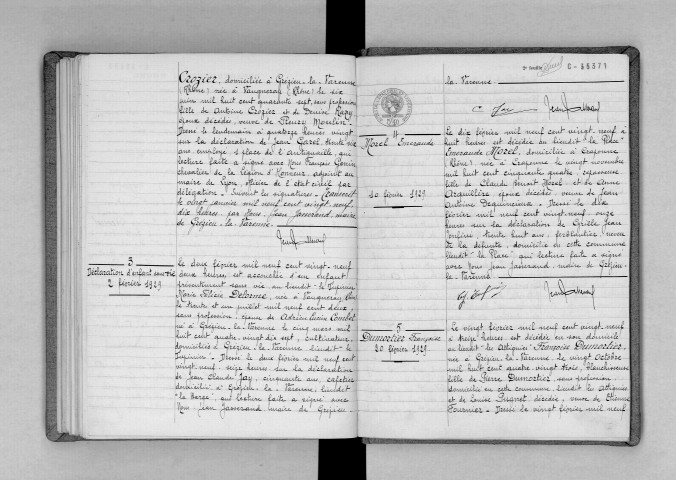 Crozier, domiciliée à Grézieu-la-Varenne
(Rhône) née à Vaugneray (Rhône) le six
juin mil huit cent quarante sept, sans profession
fille de Antoine Crozier et de Denise Razy
époux décédés, veuve de
Dressé le lendemain à quatorze heures vingt
sur la déclaration de Jean Gazel, trente six
ans, employé, place de l'Antiquaille, qui
lecture faite a signé avec Nous François Genin
chevalier de la Légion d'Honneur, adjoint au
maire de Lyon, officier de l'état civil par
délégation. Suivent les signatures. Transcrit
le vingt janvier mil neuf cent vingt-neuf
dix heures, par Nous, Jean Jasserand, maire
de Grézieu-la-Varenne.
3
Déclaration d'enfant sans vie
2 février 1929.
Le deux février mil neuf cent vingt-neuf
deux heures est accouchée d'un enfant
présentement sans vie au lieudit le Jupinier
Marie Félicie Delorme, née à Vaugneray
le trente et un juillet mil neuf cent deux
sans profession, épouse de Adrien Combet
né à Grézieu-la-Varenne le cinq mars mil
huit cent quatre vingt dix sept, cultivateur,
domiciliés à Grézieu-la-Varenne lieudit le
Jupinier. Dressé le deux février mil neuf cent
vingt-neuf, seize heures, sur la déclaration
de Jean Claude Jay, cinquante ans, cafetier
domicilié à Grézieu-la-Varenne, lieudit
"la Barge", qui lecture faite a signé avec
Nous, Jean Jasserand, maire de Grézieu-
C-55371
la-Varenne
4
Morel Emeraude
10 février 1929.
Le dix février mil neuf cent vingt-neuf à
huit heures est décédée au lieudit la Place
Emeraude Morel, domiciliée à Craponne
(Rhône) née à Craponne le vingt novembre
mil huit cent cinquante quatre, repasseuse
fille de Claude Benoit Morel, et de Anne
époux décédés, veuve de Jean-
Antoine Dressé le dix
février mil neuf cent vingt-neuf, onze
heures sur la déclaration de Cyrille Jean
trente huit ans, ferblantier, neveu
de la défunte, domicilié en cette commune
lieudit la Place, qui lecture faite a signé
avec Nous Jean Jasserand, maire de Grézieu-
la-Varenne.
5
Dumortier Françoise
20 février 1929.
Le vingt février mil neuf cent vingt-neuf
à seize heures est décédée en son domicile
au lieudit les Attignies, Françoise Dumortier,
née à Grézieu-la-Varenne, le vingt octobre
mil huit cent quatre vingt trois, blanchisseuse
fille de Pierre Dumortier, sans profession
domicilié en cette commune, lieudit les Attignies
et de Louise décédée, veuve de Etienne
Fournier. Dressé le vingt février mil neuf